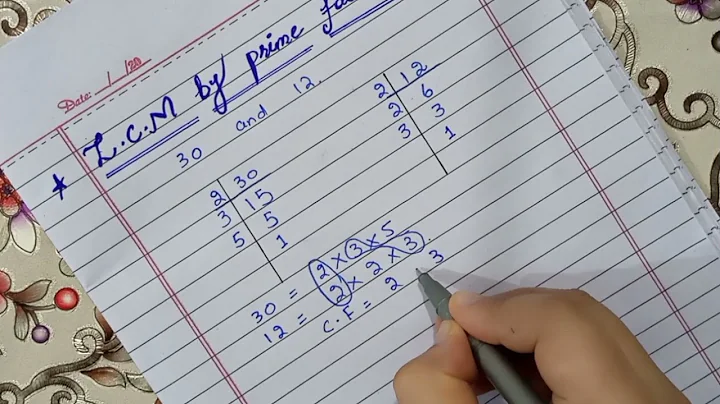 Date: / /20
* L.C.M by prime
30 and 12.
2 | 30
3 | 15
5 | 5
1
2 | 12
2 | 6
3 | 3
1
30 = 2 × 3 × 5
12 = 2 × 2 × 3.
C.F = 2 3